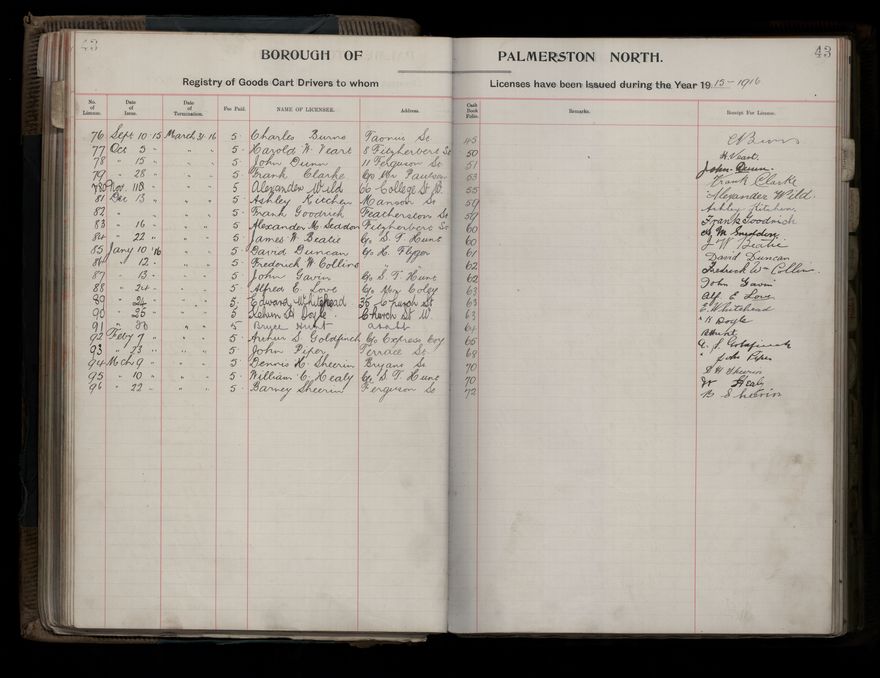 43
43
BOROUGH OF PALMERSTON NORTH.
Registry of Goods Cart Drivers to whom Licenses have been Issued during the Year 1915-1916
No. of License. Date of Issue. Date of Termination. Fee Paid. NAME OF LICENSEE. Address. Cash Book Folio. Remarks. Receipt For License.
76 Sept 10 15 March 31 16 5 - Charles Burns Taonui St 45
77 Oct 5 - " " - 5 - Harold W. Veart 8 Fitzherbert St 50 H. Veart.
78 " 15 " " " 5 - John Dunn 11 Ferguson St 51 John Dunn.
79 " 28 " " " 5 - Frank Clarke C/o Mr Paulsen 53 Frank Clarke
80 Nov. 5 - Alexander Wild 66 College St W. 55 Alexander Wild.
81 Dec 13 " " " 5 - Ashley Kitchen Manson St 59 Ashley Kitchen.
82 " " " 5 - Frank Goodrich Featherston St 59 Frank Goodrich
83 " 16 - " " 5 - Alexander M. Fitzherbert St 60
84 " 22 " " " 5 - James W. Beatie C/o S. T. Hunt 60 J W Beatie
85 Jany 10 '16 " " 5 - David Duncan C/o H. 61 David Duncan
86 " 12 - " " 5 - Frederick W Collins " 62 Fredrick Wm Collins.
87 " 13 - " " 5 - John Gavin C/o S. T. Hunt 62 John Gavin
88 " 24 - " " 5 - Alfred E. Love C/o Wm Coley 63 Alf. E Love
89 " 24 - " " 5 - Edward Whitehead 35 Church St 63 E. Whitehead
90 " 25 " " " 5 - Doyle Church St W 63 Doyle
91 " " " 5 Bryce Hunt 64
92 Feby 7 " " " 5 - Arthur S. Goldfinch C/o Express Coy 65 A. S. Goldfinch
93 " 23 " " " 5 - John Piper Terrace St 68 John Piper
94 Mch 9 " " " 5 - Dennis H. Sheerin Bryans St 70 D H Sheerin
95 " 10 " " " 5 - William C. Healy C/o S. T. Hunt 70 W Healy
96 " 22 - " " 5 - Barney Sheerin Ferguson St 72 B Sheerin